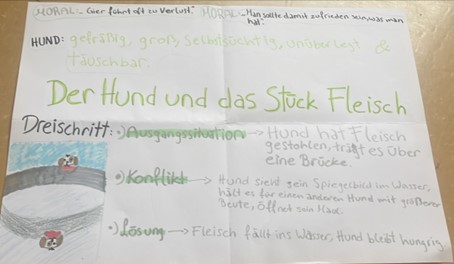 MORAL: „Gier führt oft zu Verlust“ MORAL: „Man sollte damit zufrieden sein was man hat.“
HUND: gefräßig, groß, selbstsüchtig, unüberlegt &
täuschbar.
Der Hund und das Stück Fleisch
Dreischritt: •) Ausgangssituation → Hund hat Fleisch
gestohlen, trägt es über
eine Brücke.
•) Konflikt → Hund sieht sein Spiegelbild im Wasser,
hält es für einen anderen Hund mit größerer
Beute, öffnet sein Maul.
•) Lösung → Fleisch fällt ins Wasser, Hund bleibt hungrig.